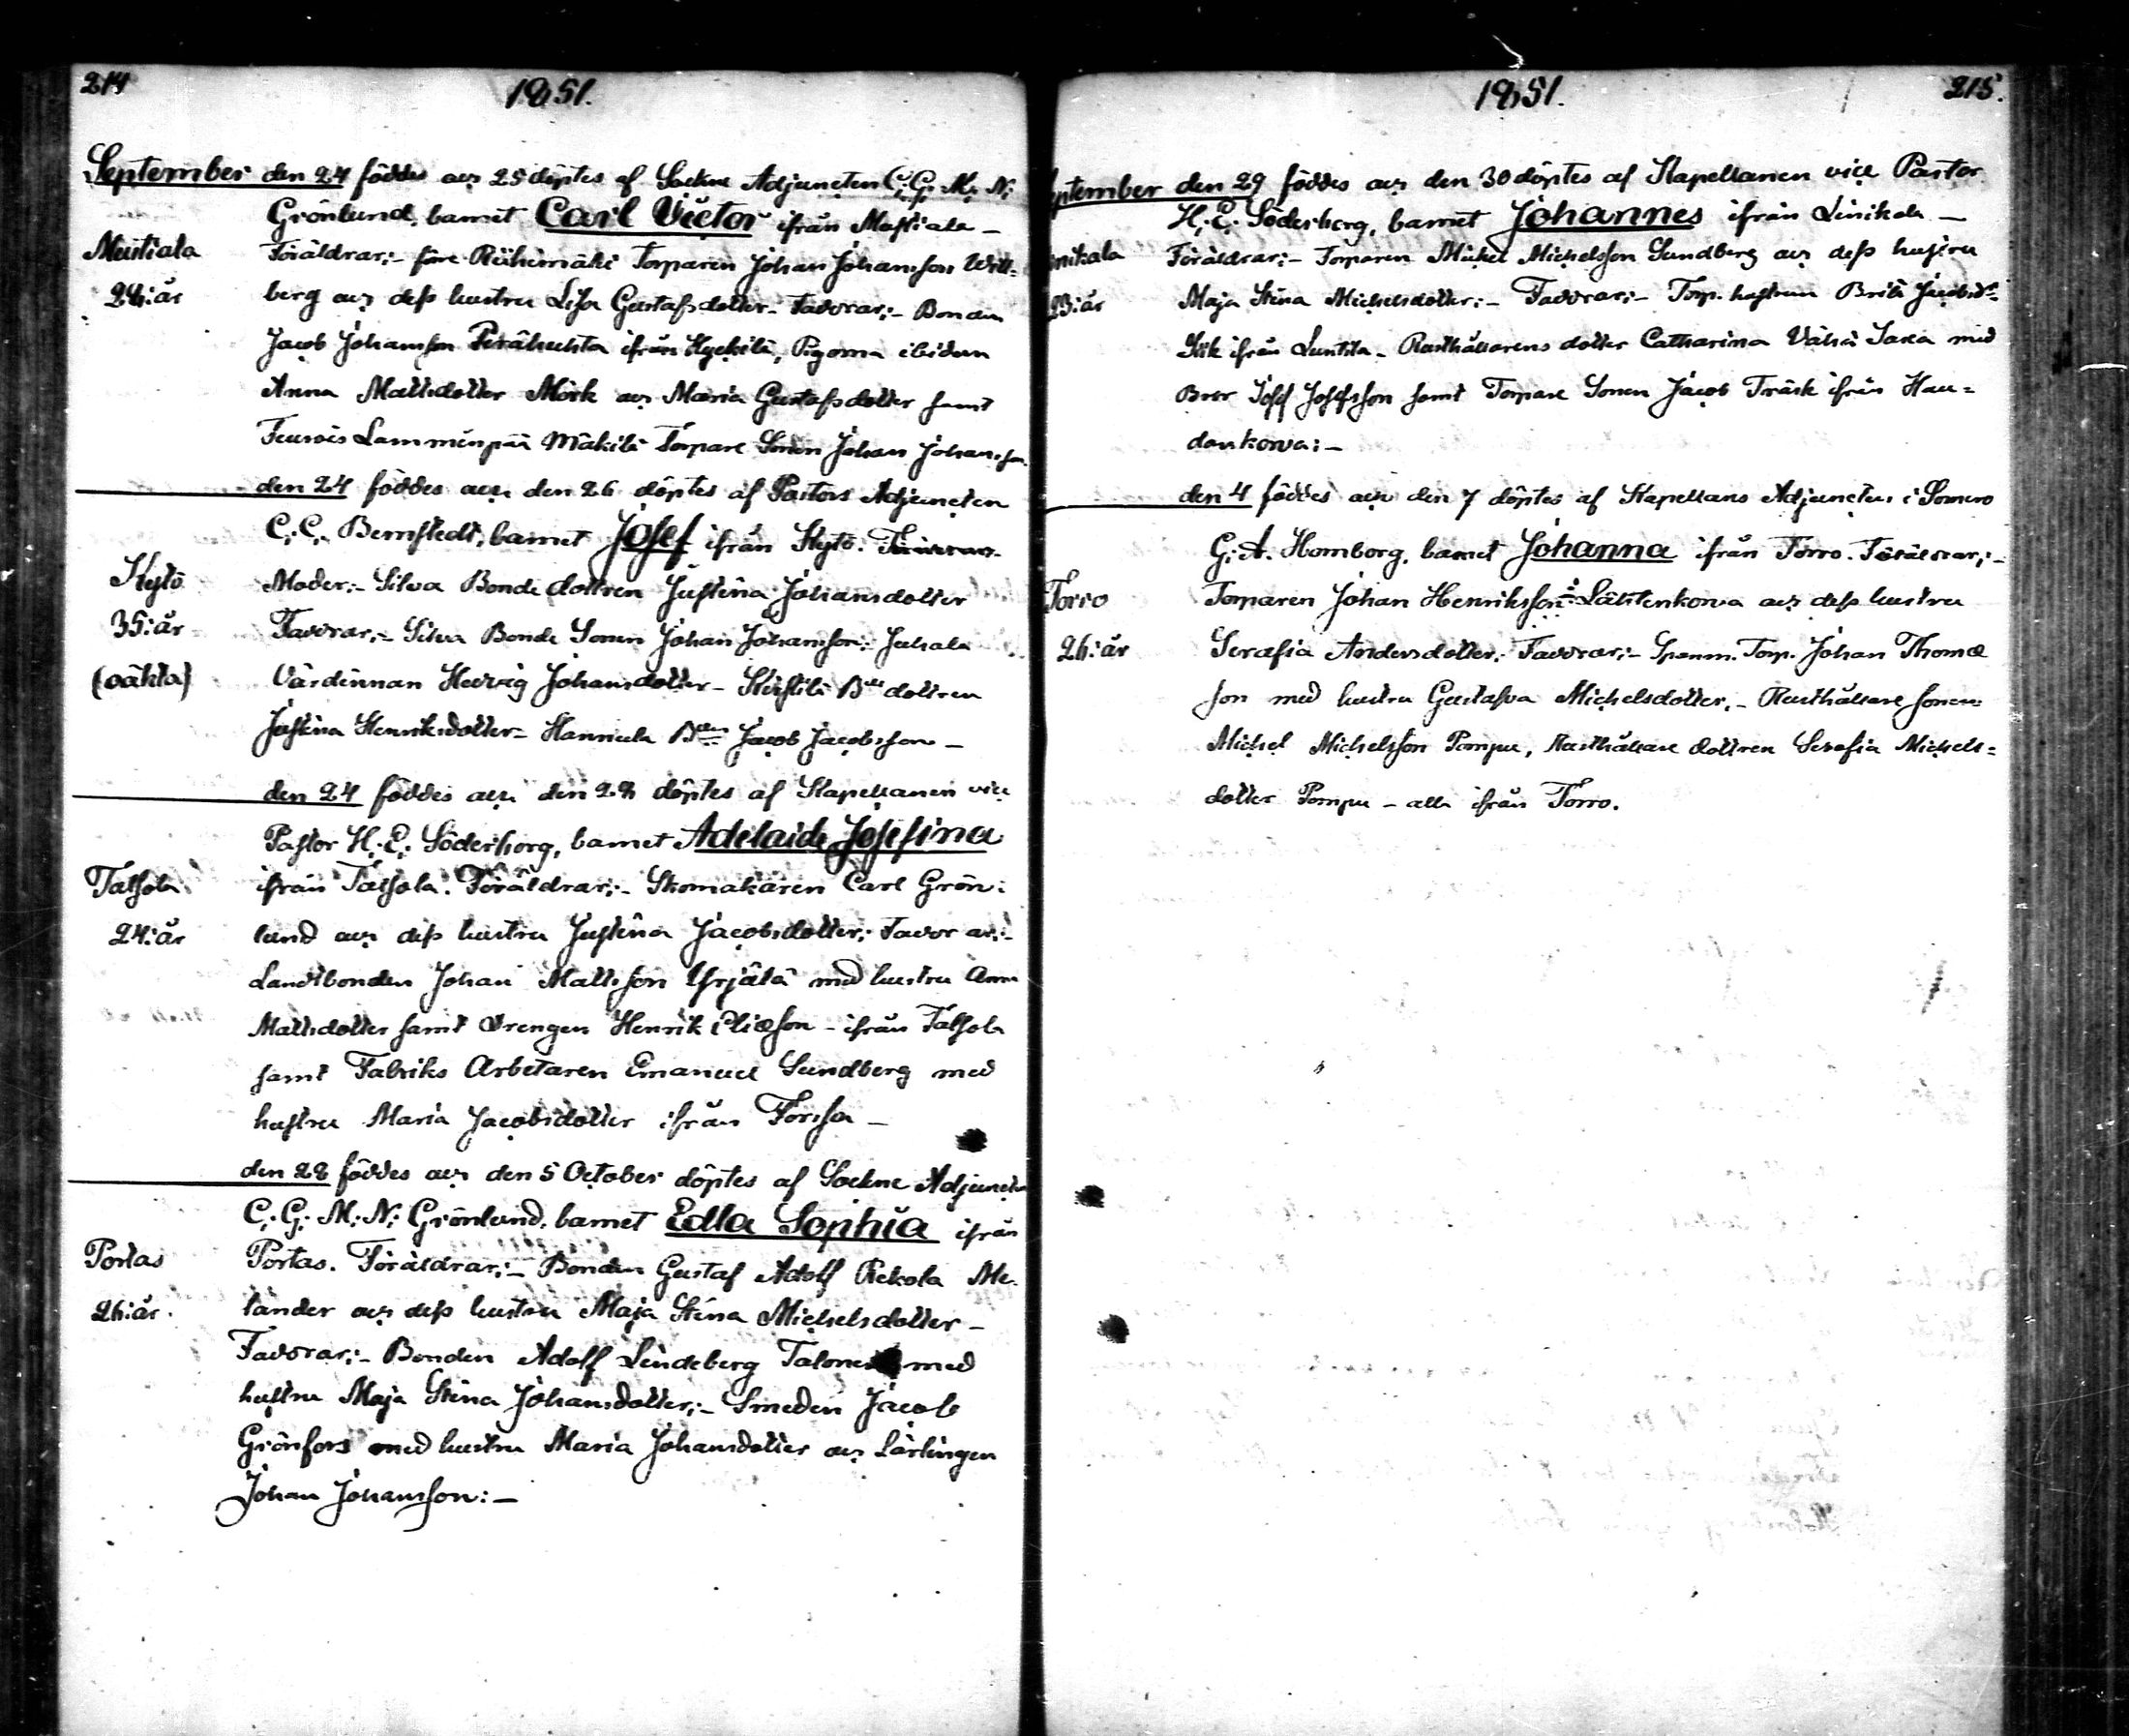 214
1851.
September den 24 föddes och 25 döptes af Sockne Adjuncten C. G. M. N.
Grönlund, barnet Carl Victor ifrån Mustiala –
Mustiala
28: år
Föräldrar:- före Riihimäki Torparen Johan Johansson Will-
berg och dess hustru Lisa Gustafsdotter – Faddrar:- Bonden
Jacob Johansson Perähuhta ifrån Kyekilä, Pigorna ibidem
Anna Mattsdotter Mörk och Maria Gustafsdotter samt
Lamminpää Mäkilä Torpare Sonen Johan Johansson
den 24 föddes och den 26 döptes af Pastors Adjuncten
C. C. Bernstedt, barnet Josef ifrån Kytö.
Kytö
35: år
(oäkta)
Moder:- Silva Bonde dottren Justina Johansdotter
Faddrar:- Silva Bonde Sonen Johan Johansson – Juhala
Värdinnan Hedvig Johansdotter – B:de dottren
Justina Henriksdotter – Hannula B:den Jacob Jacobsson –
den 24 föddes och den 28 döptes af Kapellanen vice
Pastor H. E. Söderborg, barnet Adelaide Josefina
Talsola
24: år
ifrån Talsola. Föräldrar:- Skomakaren Carl Grön-
lund och dess hustru Justina Jacobsdotter: Faddrar:-
Landtbonden Johan Mattsson Yrjälä med hustru Anna
Mattsdotter samt Drengen Henrik Eliæson – ifrån Talsola
samt Fabriks Arbetaren Emanuel Sundberg med
hustru Maria Jacobsdotter ifrån Forssa –
den 28 föddes och den 5 October döptes af Sockne Adjuncten
C. G. M. N. Grönlund, barnet Edla Sophia ifrån
Portas
26: år.
Portas. Föräldrar:- Bonden Gustaf Adolf Rekola Me-
lander och dess hustru Maja Stina Michelsdotter –
Faddrar:- Bonden Adolf Lindeberg Talonen med
hustru Maja Stina Johansdotter:- Smeden Jacob
Grönfors med hustru Maria Johansdotter och Lärlingen
Johan Johansson:–
1851.
215.
ptember den 29 föddes och den 30 döptes af Kapellanen vice Pastor
H. E. Söderborg, barnet Johannes ifrån Linikala –
nikala
23: år
Föräldrar:- Torparen Michel Michelsson Sundberg och dess hustru
Maja Stina Michelsdotter:- Faddrar:- Torp. hustrun Brita Jacobsd:r
Siik ifrån Luntila – Rusthållarens dotter Catharina Vähä Saxa med
Bror Josef Josefsson samt Torpare Sonen Jacob Träsk ifrån Hau-
dankorva:–
den 4 föddes och den 7 döptes af Kapellans Adjuncten i Somero
G. A. Homborg, barnet Johanna ifrån Torro. Föräldrar:-
Torro
26: år
Torparen Johan Henriksson Lähteenkorva och dess hustru
Serafia Andersdotter: Faddrar:- Spanm. Torp. Johan Thomæ
son med hustru Gustafva Michelsdotter, – Rusthållare sonen
Michel Michelsson Pompu, Rusthållare dottren Serafia Michels-
dotter Pompu – alla ifrån Torro.